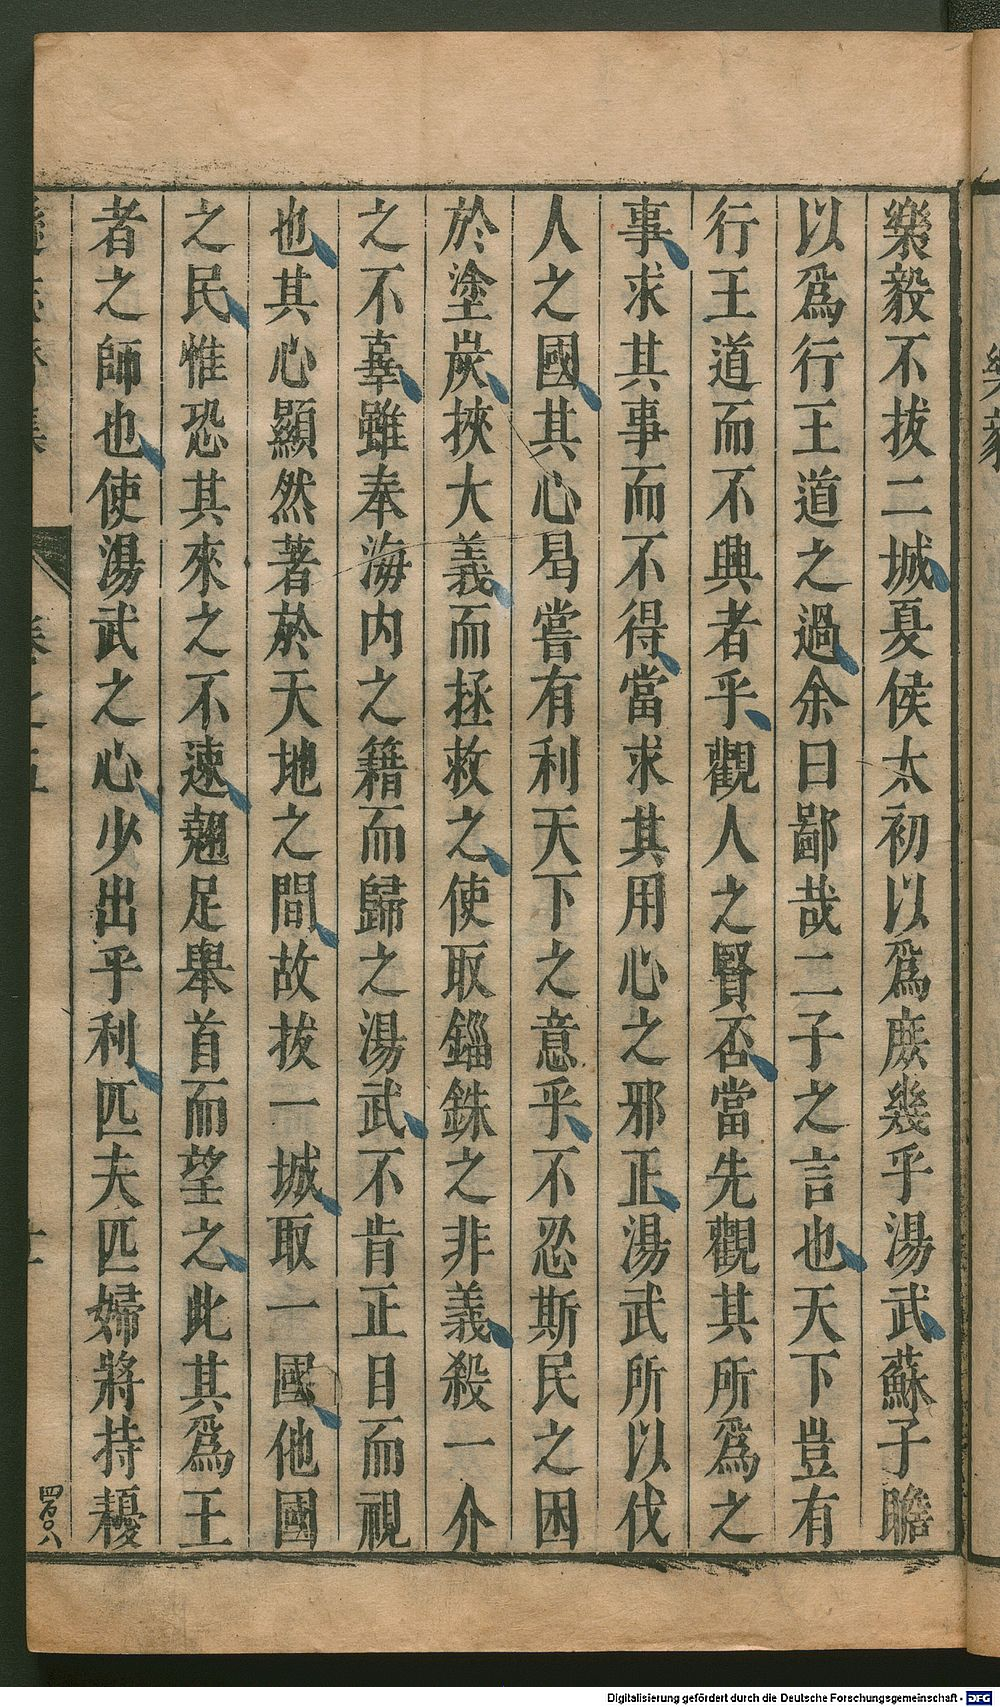 樂毅不拔二城夏侯太初以爲庶幾乎湯武蘇子瞻
以爲行王道之過余曰鄙哉二子之言也天下豈有
行王道而不興者乎觀人之賢否當先觀其所爲之
事求其事而不得當求其用心之邪正湯武所以伐
人之國其心曷嘗有利天下之意乎不忍斯民之困
於塗炭挾大義而拯救之使取錙銖之非義殺一介
之不辜雖奉海内之籍而歸之湯武不肯正目而視
也其心顯然著於天地之間故拔一城取一國他國
之民惟恐其來之不速翹足舉首而望之此其爲王
者之師也使湯武之心少出乎利匹夫匹婦將持耰
卷之五
四百〇八
Digitalisierung gefördert durch die Deutsche Forschungsgemeinschaft - DFG